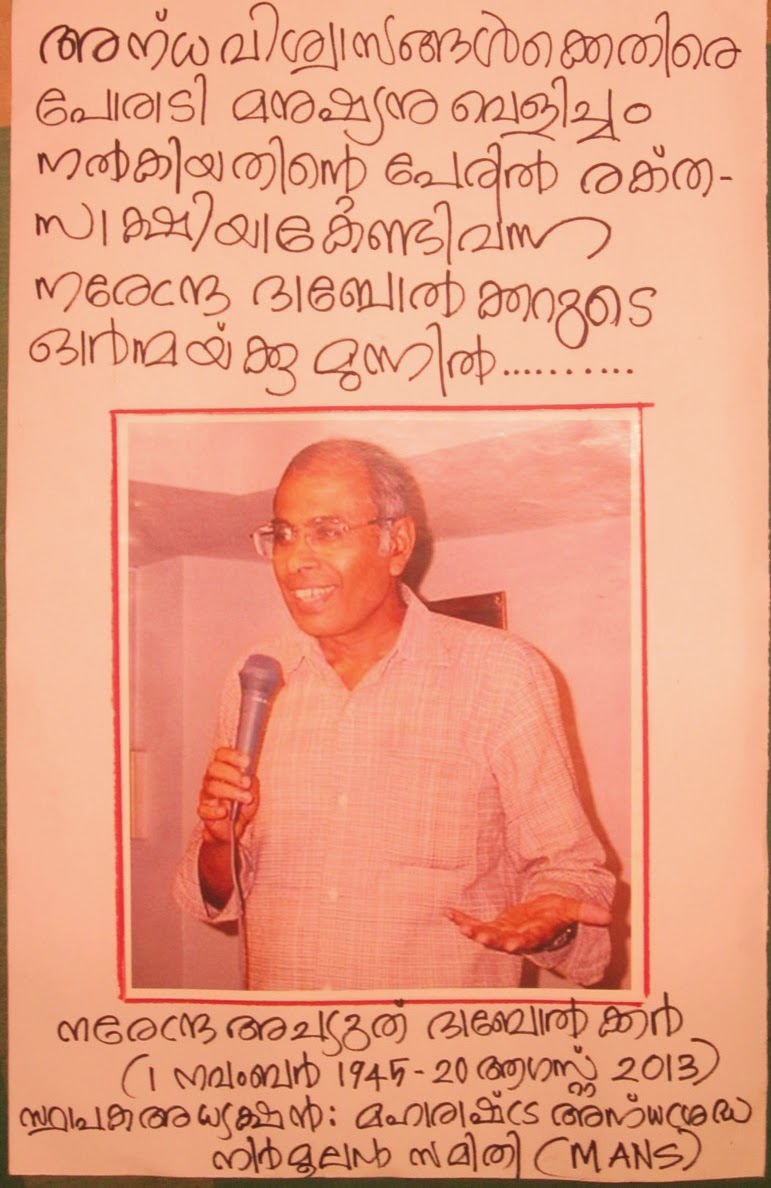 അന്ധവിശ്വാസങ്ങൾക്കെതിരെ
പോരാടി മനുഷ്യനു വെളിച്ചം
നൽകിയതിന്റെ പേരിൽ രക്ത-
സാക്ഷിയാകേണ്ടിവന്ന
നരേന്ദ്ര ദാബോൽക്കറുടെ
ഓർമ്മയ്ക്കു മുന്നിൽ...........
നരേന്ദ്ര അച്യുത് ദാബോൽക്കർ
(1 നവംബർ 1945-20 ആഗസ്റ്റ് 2013)
സ്ഥാപകഅധ്യക്ഷൻ: മഹാരാഷ്ട്ര അന്ധശ്രദ്ധ
നിർമൂലൻ സമിതി (MANS)